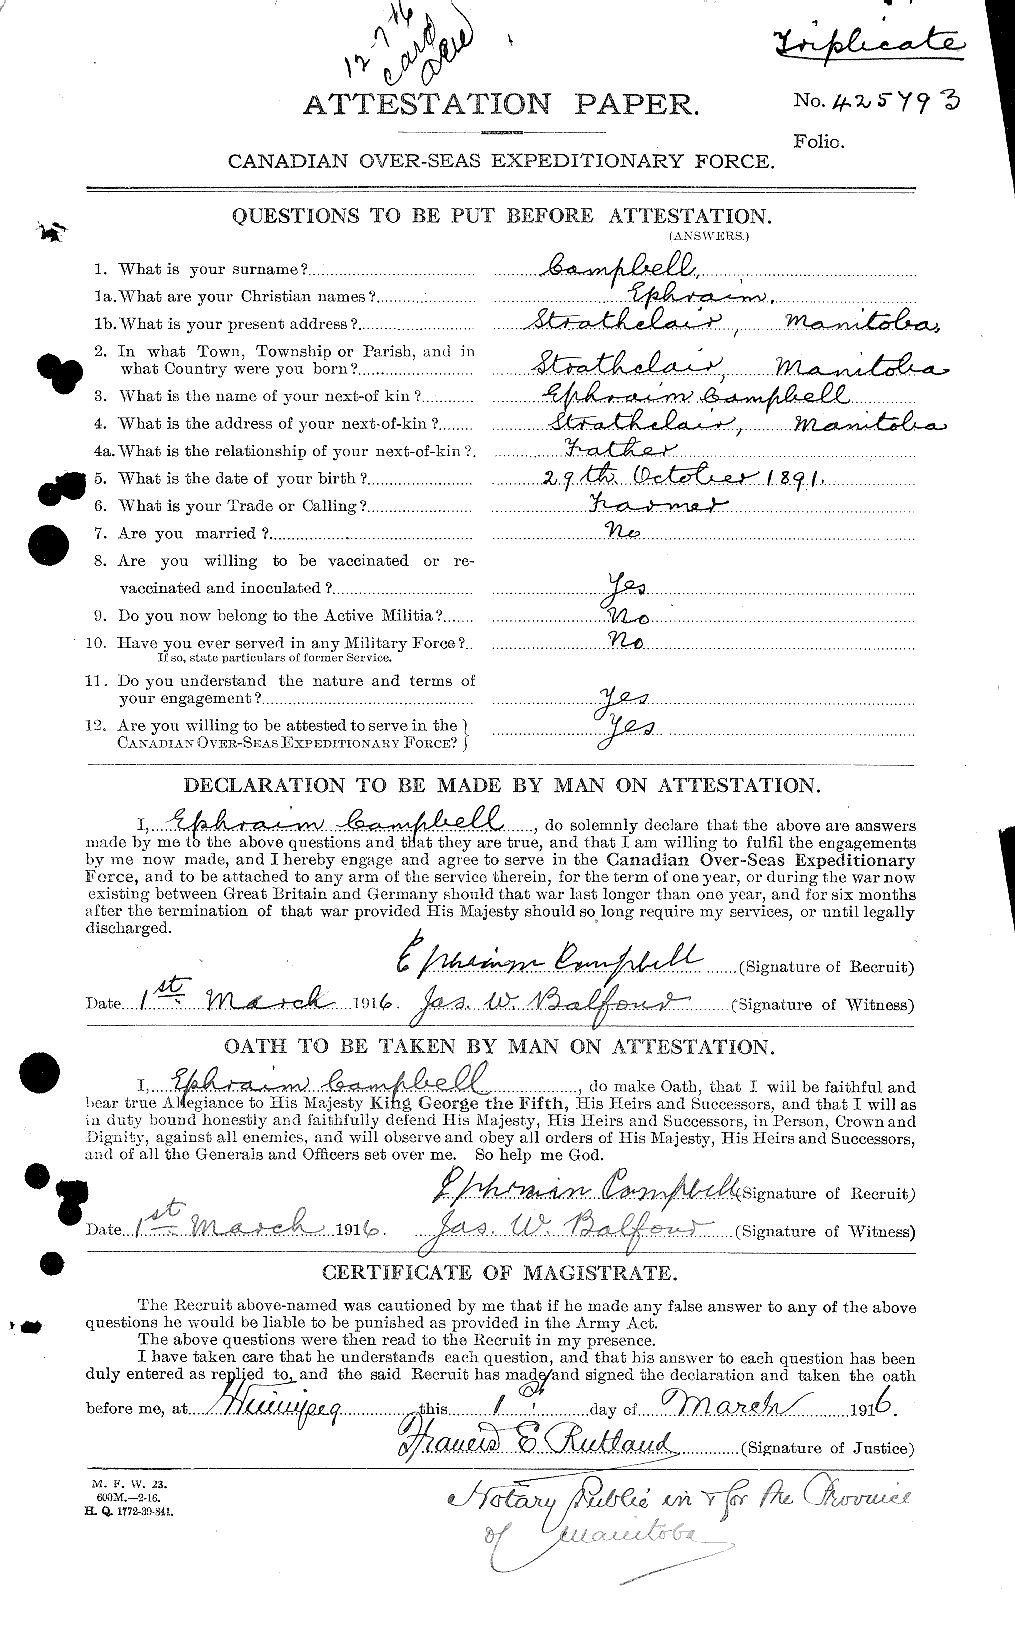 12-7-16
card
Triplicate
ATTESTATION PAPER.
No. 425793
Folio.
CANADIAN OVER-SEAS EXPEDITIONARY FORCE.
QUESTIONS TO BE PUT BEFORE ATTESTATION.
(ANSWERS.)
1. What is your surname? Campbell,
1a. What are your Christian names? Ephraim.
1b. What is your present address? Strathclair, Manitoba,
2. In what Town, Township or Parish, and in
what Country were you born? Strathclair, Manitoba
3. What is the name of your next-of kin? Ephraim Campbell
4. What is the address of your next-of-kin? Strathclair, Manitoba
4a. What is the relationship of your next-of-kin? Father
5. What is the date of your birth? 29th October 1891.
6. What is your Trade or Calling? Farmer
7. Are you married? No
8. Are you willing to be vaccinated or re-
vaccinated and inoculated? Yes
9. Do you now belong to the Active Militia? No
10. Have you ever served in any Military Force? No
If so, state particulars of former Service.
11. Do you understand the nature and terms of
your engagement? Yes
12. Are you willing to be attested to serve in the }
CANADIAN OVER-SEAS EXPEDITIONARY FORCE? } Yes
DECLARATION TO BE MADE BY MAN ON ATTESTATION.
I, Ephraim Campbell, do solemnly declare that the above are answers
made by me to the above questions and that they are true, and that I am willing to fulfil the engagements
by me now made, and I hereby engage and agree to serve in the Canadian Over-Seas Expeditionary
Force, and to be attached to any arm of the service therein, for the term of one year, or during the war now
existing between Great Britain and Germany should that war last longer than one year, and for six months
after the termination of that war provided His Majesty should so long require my services, or until legally
discharged.
Ephraim Campbell (Signature of Recruit)
Date 1st March 1916. Jas. W. Balfour (Signature of Witness)
OATH TO BE TAKEN BY MAN ON ATTESTATION.
I, Ephraim Campbell, do make Oath, that I will be faithful and
bear true Allegiance to His Majesty King George the Fifth, His Heirs and Successors, and that I will as
in duty bound honestly and faithfully defend His Majesty, His Heirs and Successors, in Person, Crown and
Dignity, against all enemies, and will observe and obey all orders of His Majesty, His Heirs and Successors,
and of all the Generals and Officers set over me. So help me God.
Ephraim Campbell (Signature of Recruit)
Date 1st March 1916. Jas. W. Balfour (Signature of Witness)
CERTIFICATE OF MAGISTRATE.
The Recruit above-named was cautioned by me that if he made any false answer to any of the above
questions he would be liable to be punished as provided in the Army Act.
The above questions were then read to the Recruit in my presence.
I have taken care that he understands each question, and that his answer to each question has been
duly entered as replied to, and the said Recruit has made and signed the declaration and taken the oath
before me, at Winnipeg this 1st day of March 1916.
Francis E Rutland (Signature of Justice)
M. F. W. 23.
600M.—2-16.
H. Q. 1772-39-841.
Notary Public in & for the Province
of Manitoba